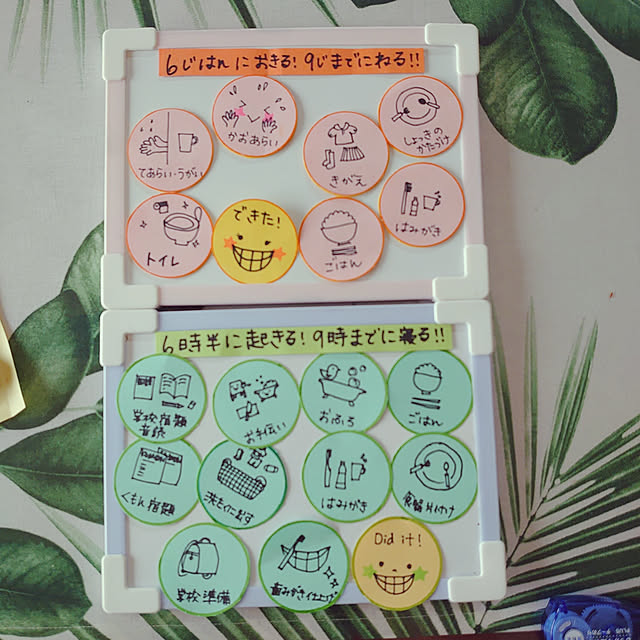 6じはんにおきる!9じまでにねる!!
かおあらい
しょっきの
かたづけ
てあらい・うがい
きがえ
トイレ
できた!
ごはん
はみがき
6時半に起きる!9時までに寝る!!
学校宿題
音読
お手伝い
おふろ
ごはん
くもん宿題
洗たくに出す
はみがき
食器片付け
学校準備
歯みがき仕上げ
Did it!